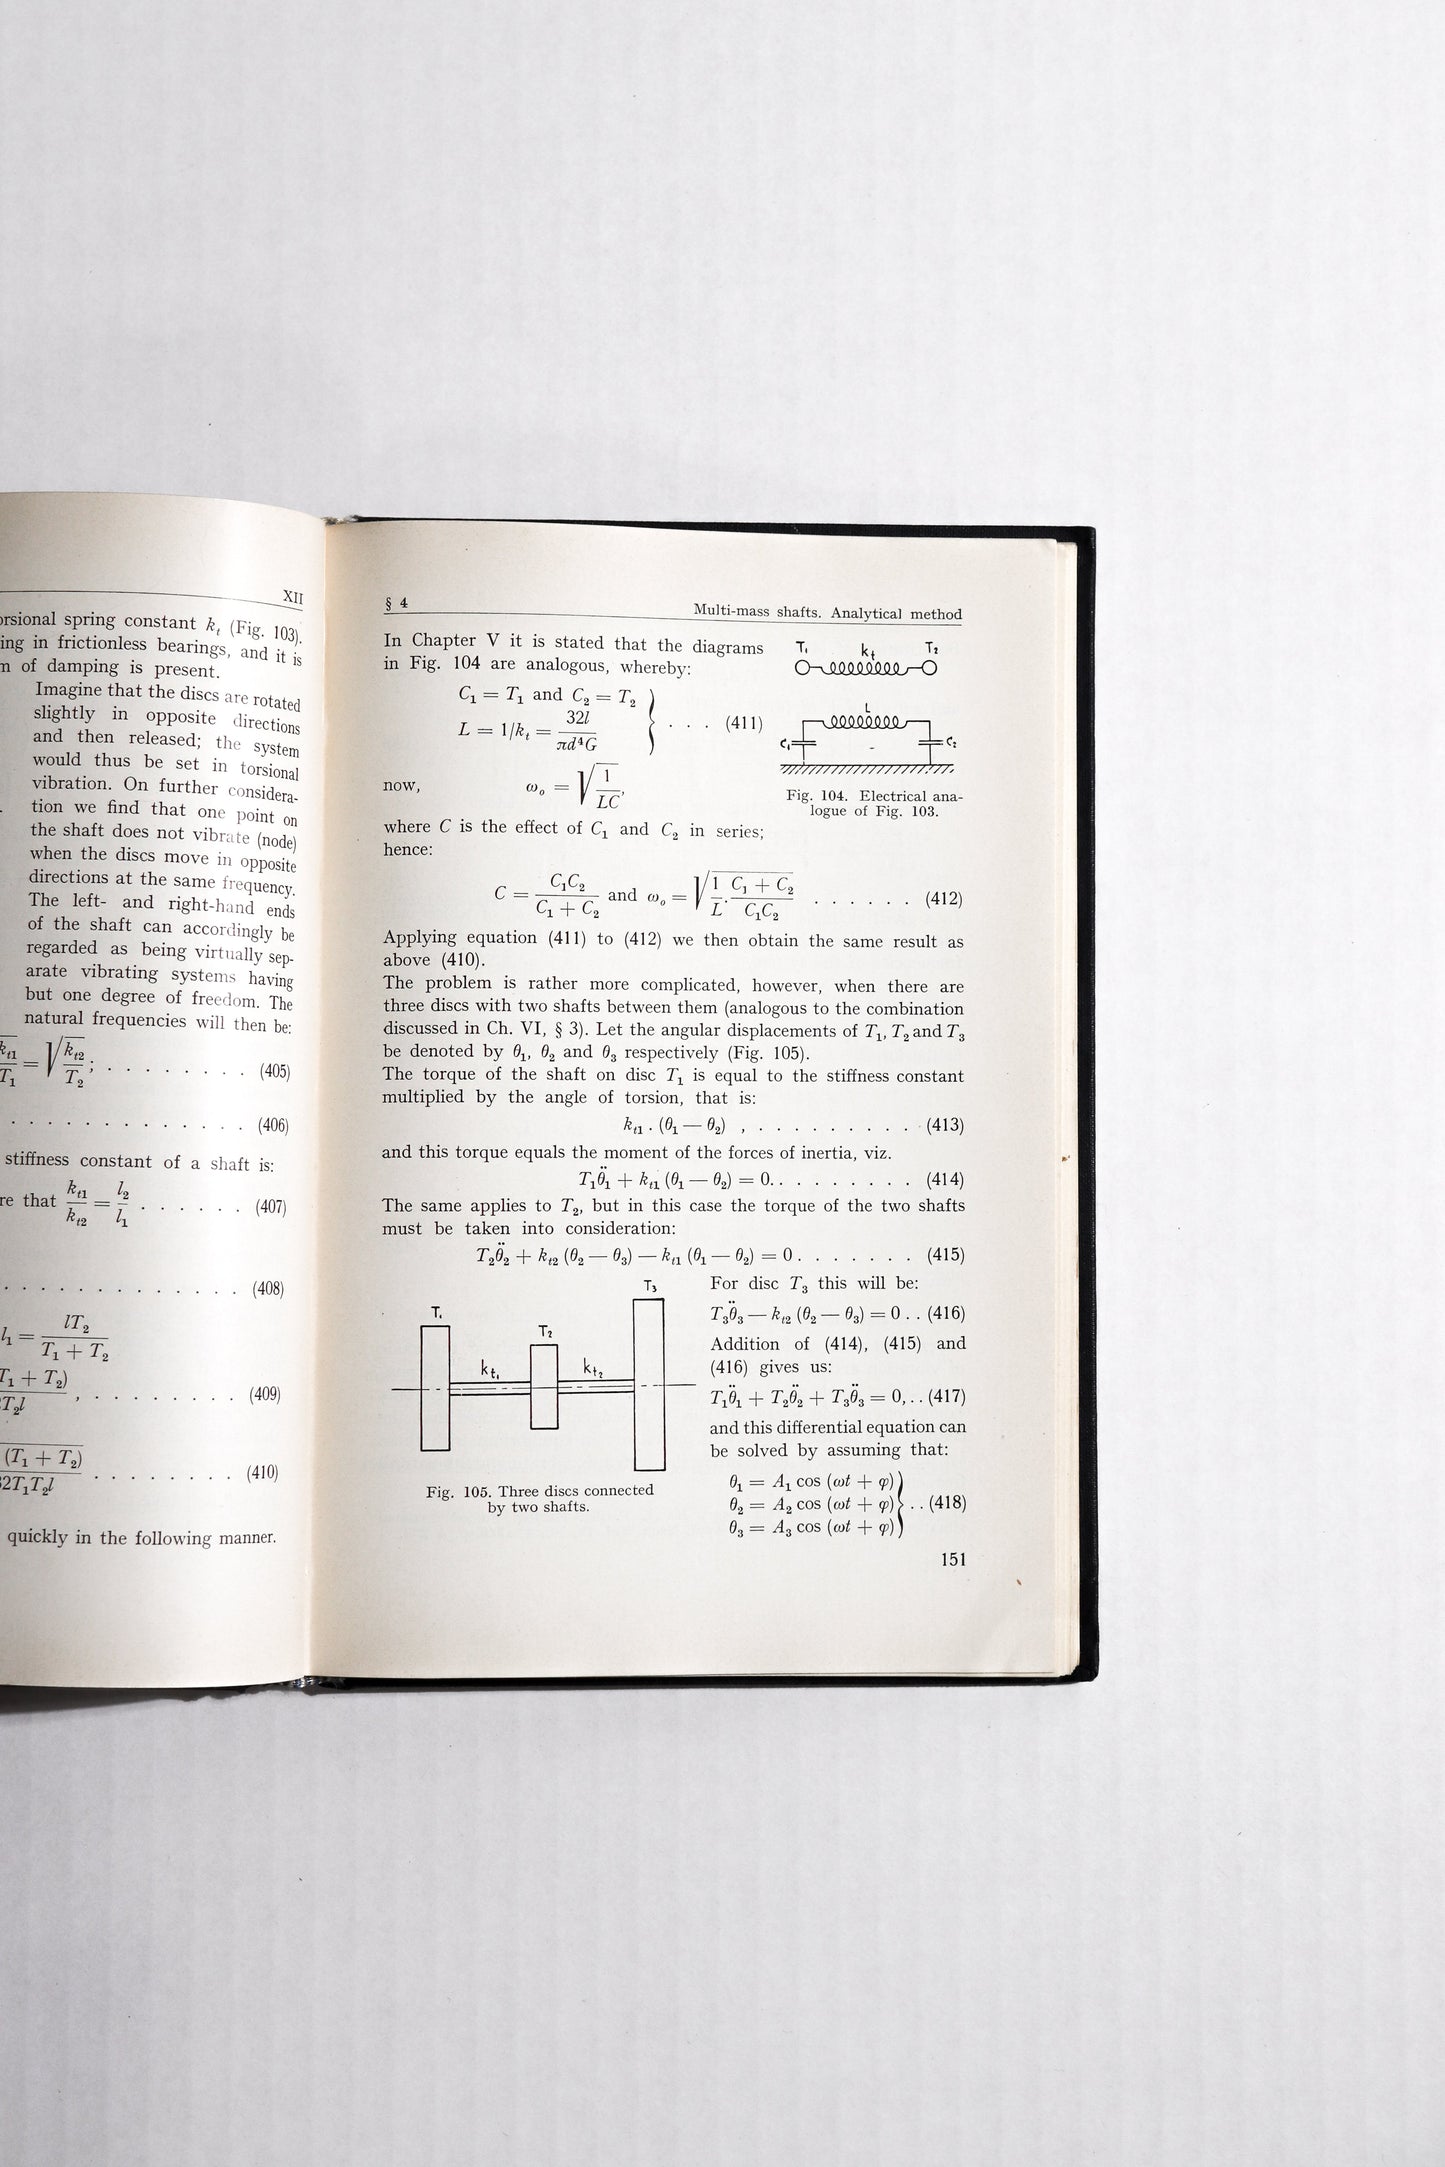 XII
torsional spring constant kₜ (Fig. 103).
ing in frictionless bearings, and it is
of damping is present.
Imagine that the discs are rotated
slightly in opposite directions
and then released; the system
would thus be set in torsional
vibration. On further considera-
tion we find that one point on
the shaft does not vibrate (node)
when the discs move in opposite
directions at the same frequency.
The left- and right-hand ends
of the shaft can accordingly be
regarded as being virtually sep-
arate vibrating systems having
but one degree of freedom. The
natural frequencies will then be:
kₜ₁/T₁ = √(kₜ₂/T₂); . . . . . . . . (405)
. . . . . . . . . . . . . (406)
stiffness constant of a shaft is:
that kₜ₁/kₜ₂ = l₂/l₁ . . . . . . (407)
. . . . . . . . . . . . . (408)
l₁ = lT₂/(T₁ + T₂)
T₁ + T₂)
T₂l , . . . . . . . . . (409)
(T₁ + T₂)
2T₁T₂l . . . . . . . . (410)
quickly in the following manner.
§ 4 Multi-mass shafts. Analytical method
In Chapter V it is stated that the diagrams
in Fig. 104 are analogous, whereby:
C₁ = T₁ and C₂ = T₂
L = 1/kₜ = 32l/πd⁴G . . . (411)
now, ωₒ = √(1/LC),
where C is the effect of C₁ and C₂ in series;
hence:
T₁ kₜ T₂
L
C₁ C₂
Fig. 104. Electrical ana-
logue of Fig. 103.
C = C₁C₂/(C₁ + C₂) and ωₒ = √(1/L · (C₁ + C₂)/C₁C₂) . . . . . . (412)
Applying equation (411) to (412) we then obtain the same result as
above (410).
The problem is rather more complicated, however, when there are
three discs with two shafts between them (analogous to the combination
discussed in Ch. VI, § 3). Let the angular displacements of T₁, T₂ and T₃
be denoted by θ₁, θ₂ and θ₃ respectively (Fig. 105).
The torque of the shaft on disc T₁ is equal to the stiffness constant
multiplied by the angle of torsion, that is:
kₜ₁ . (θ₁ — θ₂) , . . . . . . . . . . (413)
and this torque equals the moment of the forces of inertia, viz.
T₁θ̈₁ + kₜ₁ (θ₁ — θ₂) = 0. . . . . . . . . (414)
The same applies to T₂, but in this case the torque of the two shafts
must be taken into consideration:
T₂θ̈₂ + kₜ₂ (θ₂ — θ₃) — kₜ₁ (θ₁ — θ₂) = 0. . . . . . . (415)
T₁ kₜ₁ T₂ kₜ₂ T₃
Fig. 105. Three discs connected
by two shafts.
For disc T₃ this will be:
T₃θ̈₃ — kₜ₂ (θ₂ — θ₃) = 0 . . (416)
Addition of (414), (415) and
(416) gives us:
T₁θ̈₁ + T₂θ̈₂ + T₃θ̈₃ = 0, . . (417)
and this differential equation can
be solved by assuming that:
θ₁ = A₁ cos (ωt + φ)
θ₂ = A₂ cos (ωt + φ) . . (418)
θ₃ = A₃ cos (ωt + φ)
151